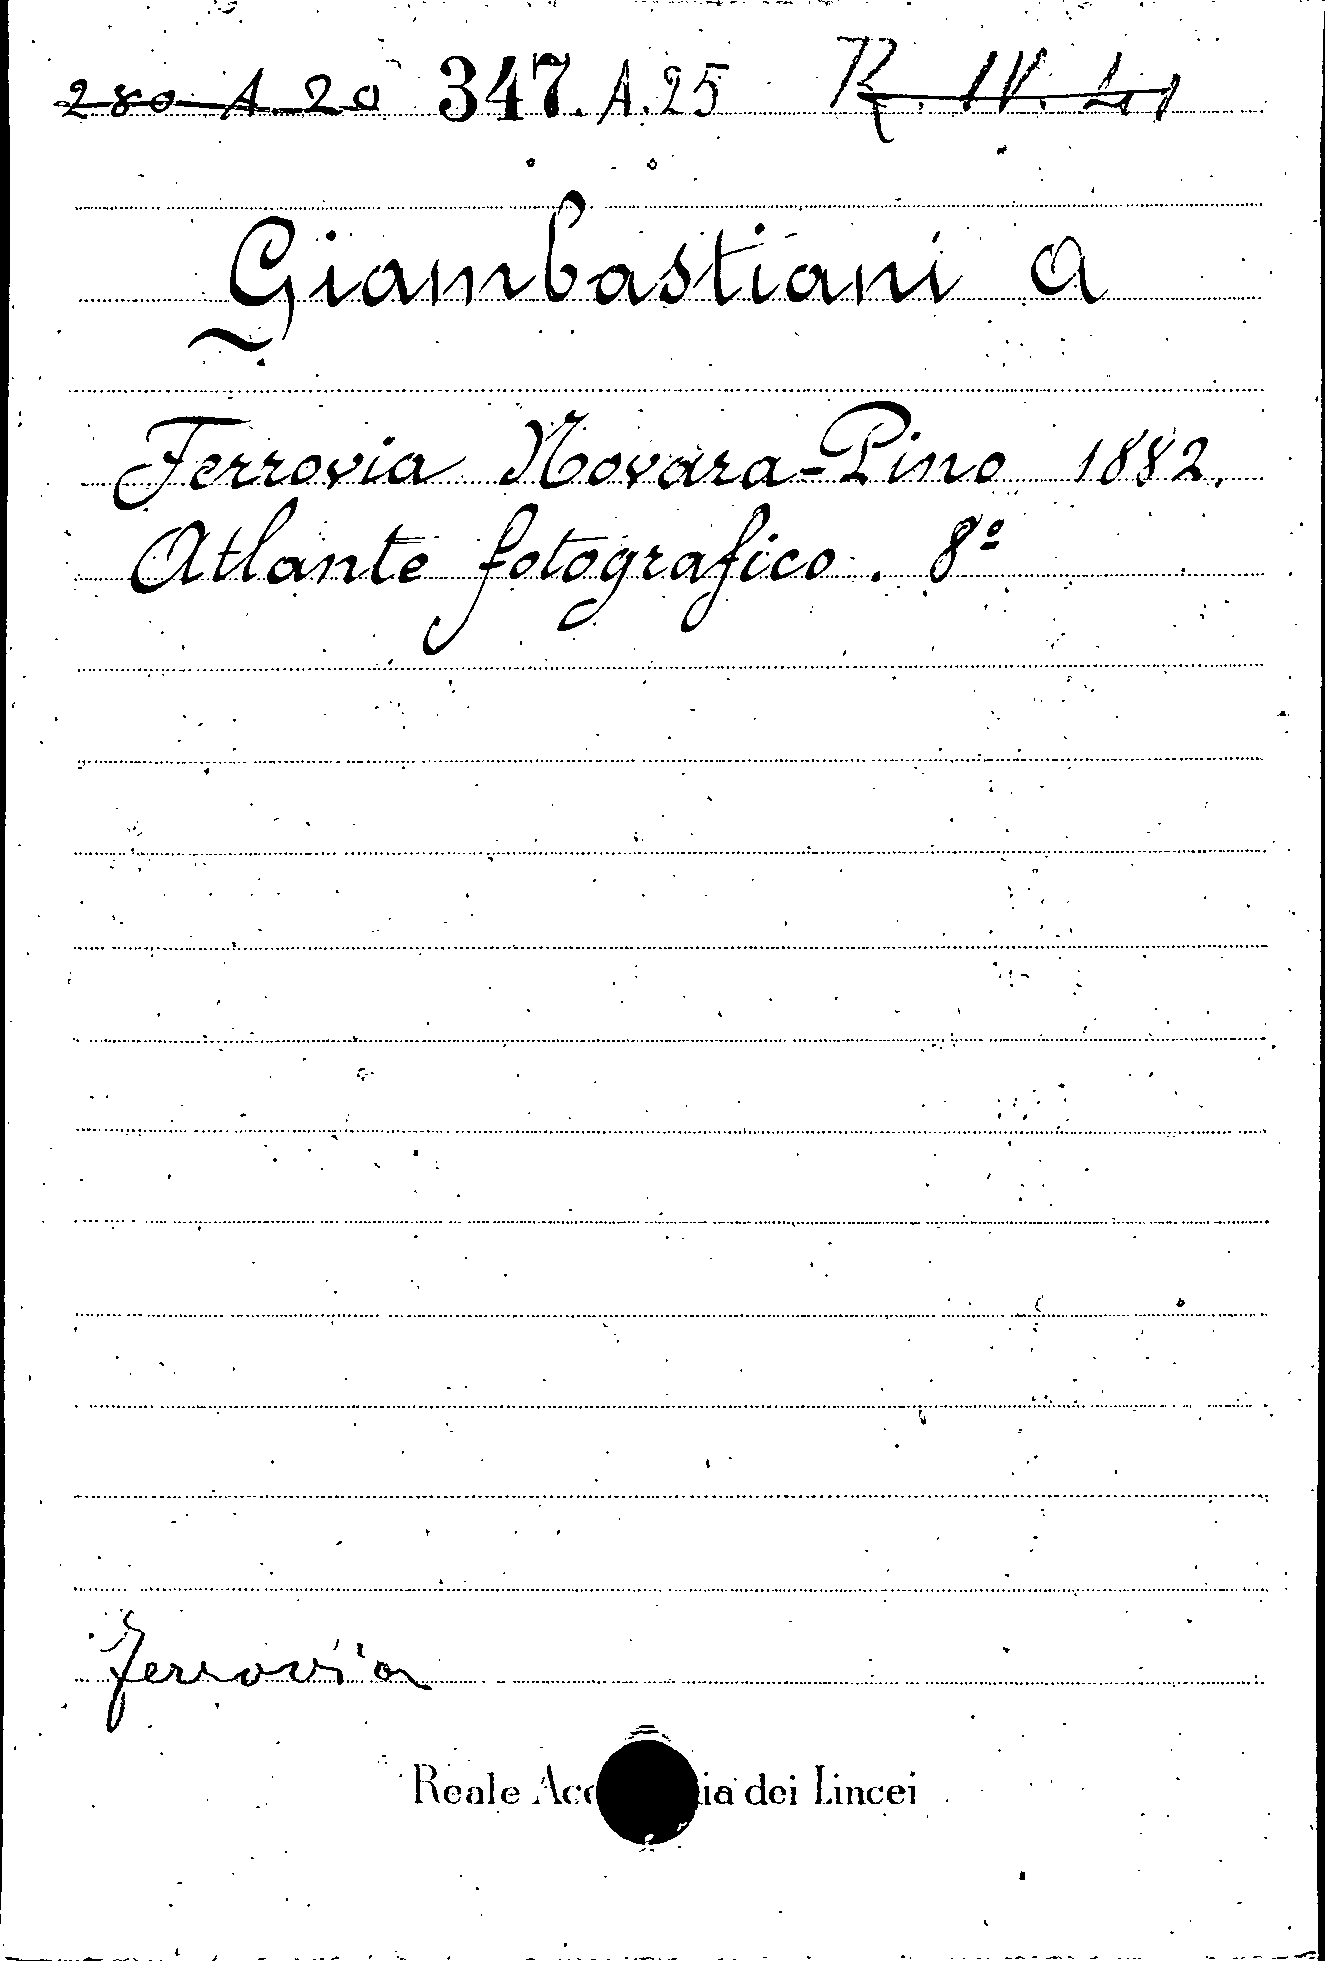 280 A. 20 347. A. 25 R. IV. 41
Giambastiani A
Ferrovia Novara-Pino 1882.
Atlante fotografico. 8º
Ferrovia
Reale Acc ia dei Lincei